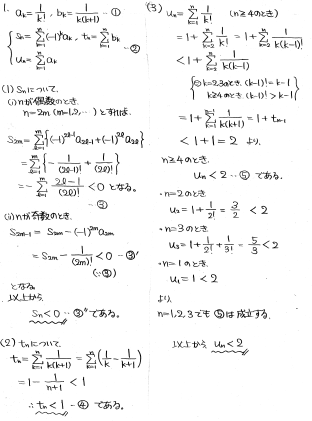 1. a_k = 1/k! , b_k = 1/k(k+1) …①
S_n = Σ_{k=1}^{n} (-1)^k a_k , t_n = Σ_{k=1}^{n} b_k …②
u_n = Σ_{k=1}^{n} a_k
(1) S_n について.
(i) nが偶数のとき
n=2m (m=1,2,…) とすれば.
S_{2m} = Σ_{l=1}^{m} {(-1)^{2l-1} a_{2l-1} + (-1)^{2l} a_{2l}}
= Σ_{l=1}^{m} {-1/(2l-1)! + 1/(2l)!}
= -Σ_{l=1}^{m} (2l-1)/(2l)! < 0 となる。
…③
(ii) nが奇数のとき.
S_{2m-1} = S_{2m} - (-1)^{2m} a_{2m}
= S_{2m} - 1/(2m)! < 0 …③'
(∵③)
となる。
以上から
S_n < 0 …③" である。
(2) t_n について.
t_n = Σ_{k=1}^{n} 1/k(k+1) = Σ_{k=1}^{n} (1/k - 1/(k+1))
= 1 - 1/(n+1) < 1
∴ t_n < 1 …④ である。
(3) u_n = Σ_{k=1}^{n} 1/k! (n≧4のとき)
= 1 + Σ_{k=2}^{n} 1/k! = 1 + Σ_{k=2}^{n} 1/k(k-1)!
< 1 + Σ_{k=2}^{n} 1/k(k-1)
k=2,3のとき (k-1)! = k-1
k≧4のとき (k-1)! > k-1
= 1 + Σ_{k=1}^{n-1} 1/k(k+1) = 1 + t_{n-1}
< 1 + 1 = 2 より.
n≧4のとき
u_n < 2 …⑤ である。
・n=2のとき
u_2 = 1 + 1/2! = 3/2 < 2
・n=3のとき
u_3 = 1 + 1/2! + 1/3! = 5/3 < 2
・n=1のとき
u_1 = 1 < 2
より
n=1,2,3でも⑤は成立する.
以上から u_n < 2